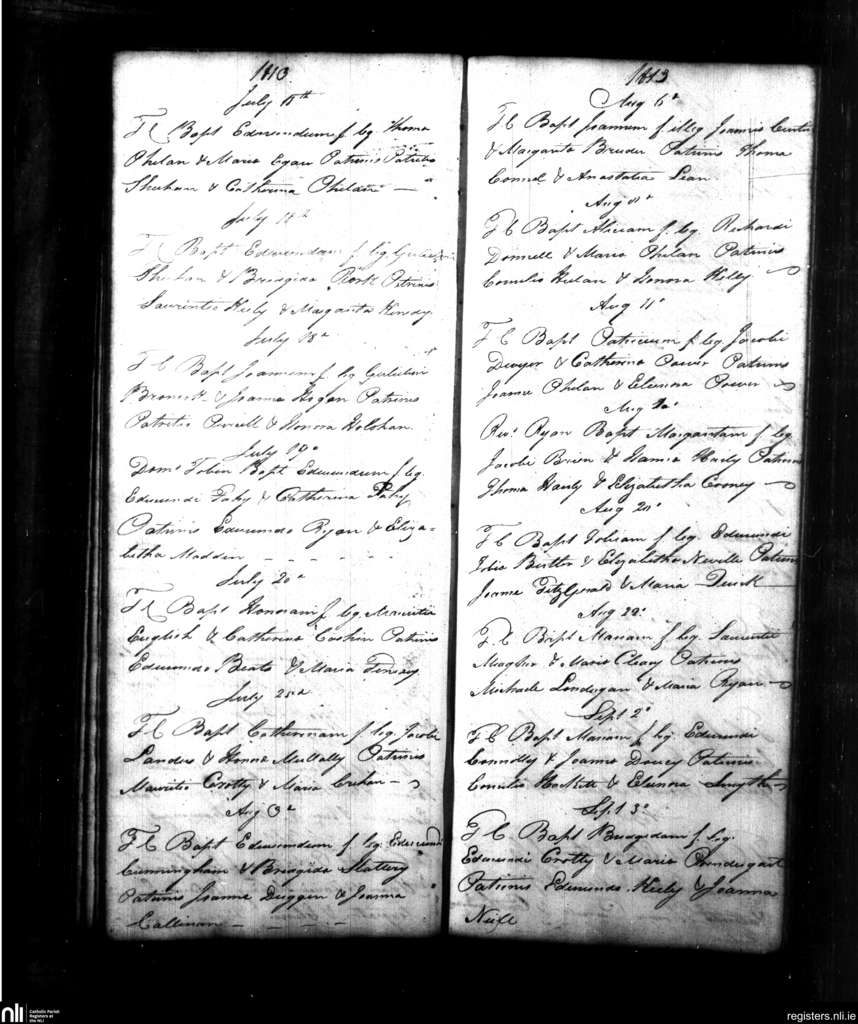 1813
July 11th
F C Bapt Edmundum f leg Thoma
Phelan & Maria Egan Patrinis Patritio
Shuhan & Catherina Phelan
July
F C Bapt Edmundam f leg
Shuhan & Brigida Patrinis
Laurentio Kiely & Margarita
July 18a
F C Bapt Joannem f leg Gulielmi
& Joanna Hogan Patrinis
Patritio Purcell & Honora Holohan
July 19a
Domn Tobin Bapt Edmundum f leg
Edmundi Fahy & Catherina Fahy
Patrinis Edmundo Ryan & Eliza-
betha Madden
July 20a
F C Bapt Honoram f leg Mauritii
English & Catherina Patrinis
Edmundo & Maria
July 25a
F C Bapt Catherinam f leg Jacobi
Landers & Honora Patrinis
Mauritio Crotty & Maria
Aug 3a
F C Bapt Edmundum f leg Edmundi
Cunningham & Brigida Slattery
Patrinis Joanne Duggan & Joanna
Callinan
1813
Aug 6a
F C Bapt Joannem f illeg Joannis
& Margarita Patrinis Thoma
Connel & Anastatia Lean
Aug 8a
F C Bapt f leg Richardi
Donnell & Maria Phelan Patrinis
Cornelio & Honora Kelly
Aug 11a
F C Bapt Patricium f leg Jacobi
Dwyer & Catherina Power Patrinis
Joanne Phelan & Elenora Power
Aug
Revd Ryan Bapt Margaritam f leg
Jacobi Brien & Hanna Patrinis
Thoma & Elizabetha Cooney
Aug 20a
F C Bapt f leg Edmundi
Butler & Elizabetha Neville Patrinis
Joanne FitzGerald & Maria
Aug 29a
F C Bapt Mariam f leg Laurentii
Meagher & Maria Cleary Patrinis
Michaele Londrgan & Maria Ryan
Sept 2a
F C Bapt Mariam f leg Edmundi
Connolly & Joanna Patrinis
Cornelio Hackett & Elenora Smyth
Sept 3a
F C Bapt Brigidam f leg
Edmundi Crotty & Maria
Patrinis Edmundo Kiely & Joanna
Neill
nli
Catholic Parish
Registers at
the NLI
registers.nli.ie